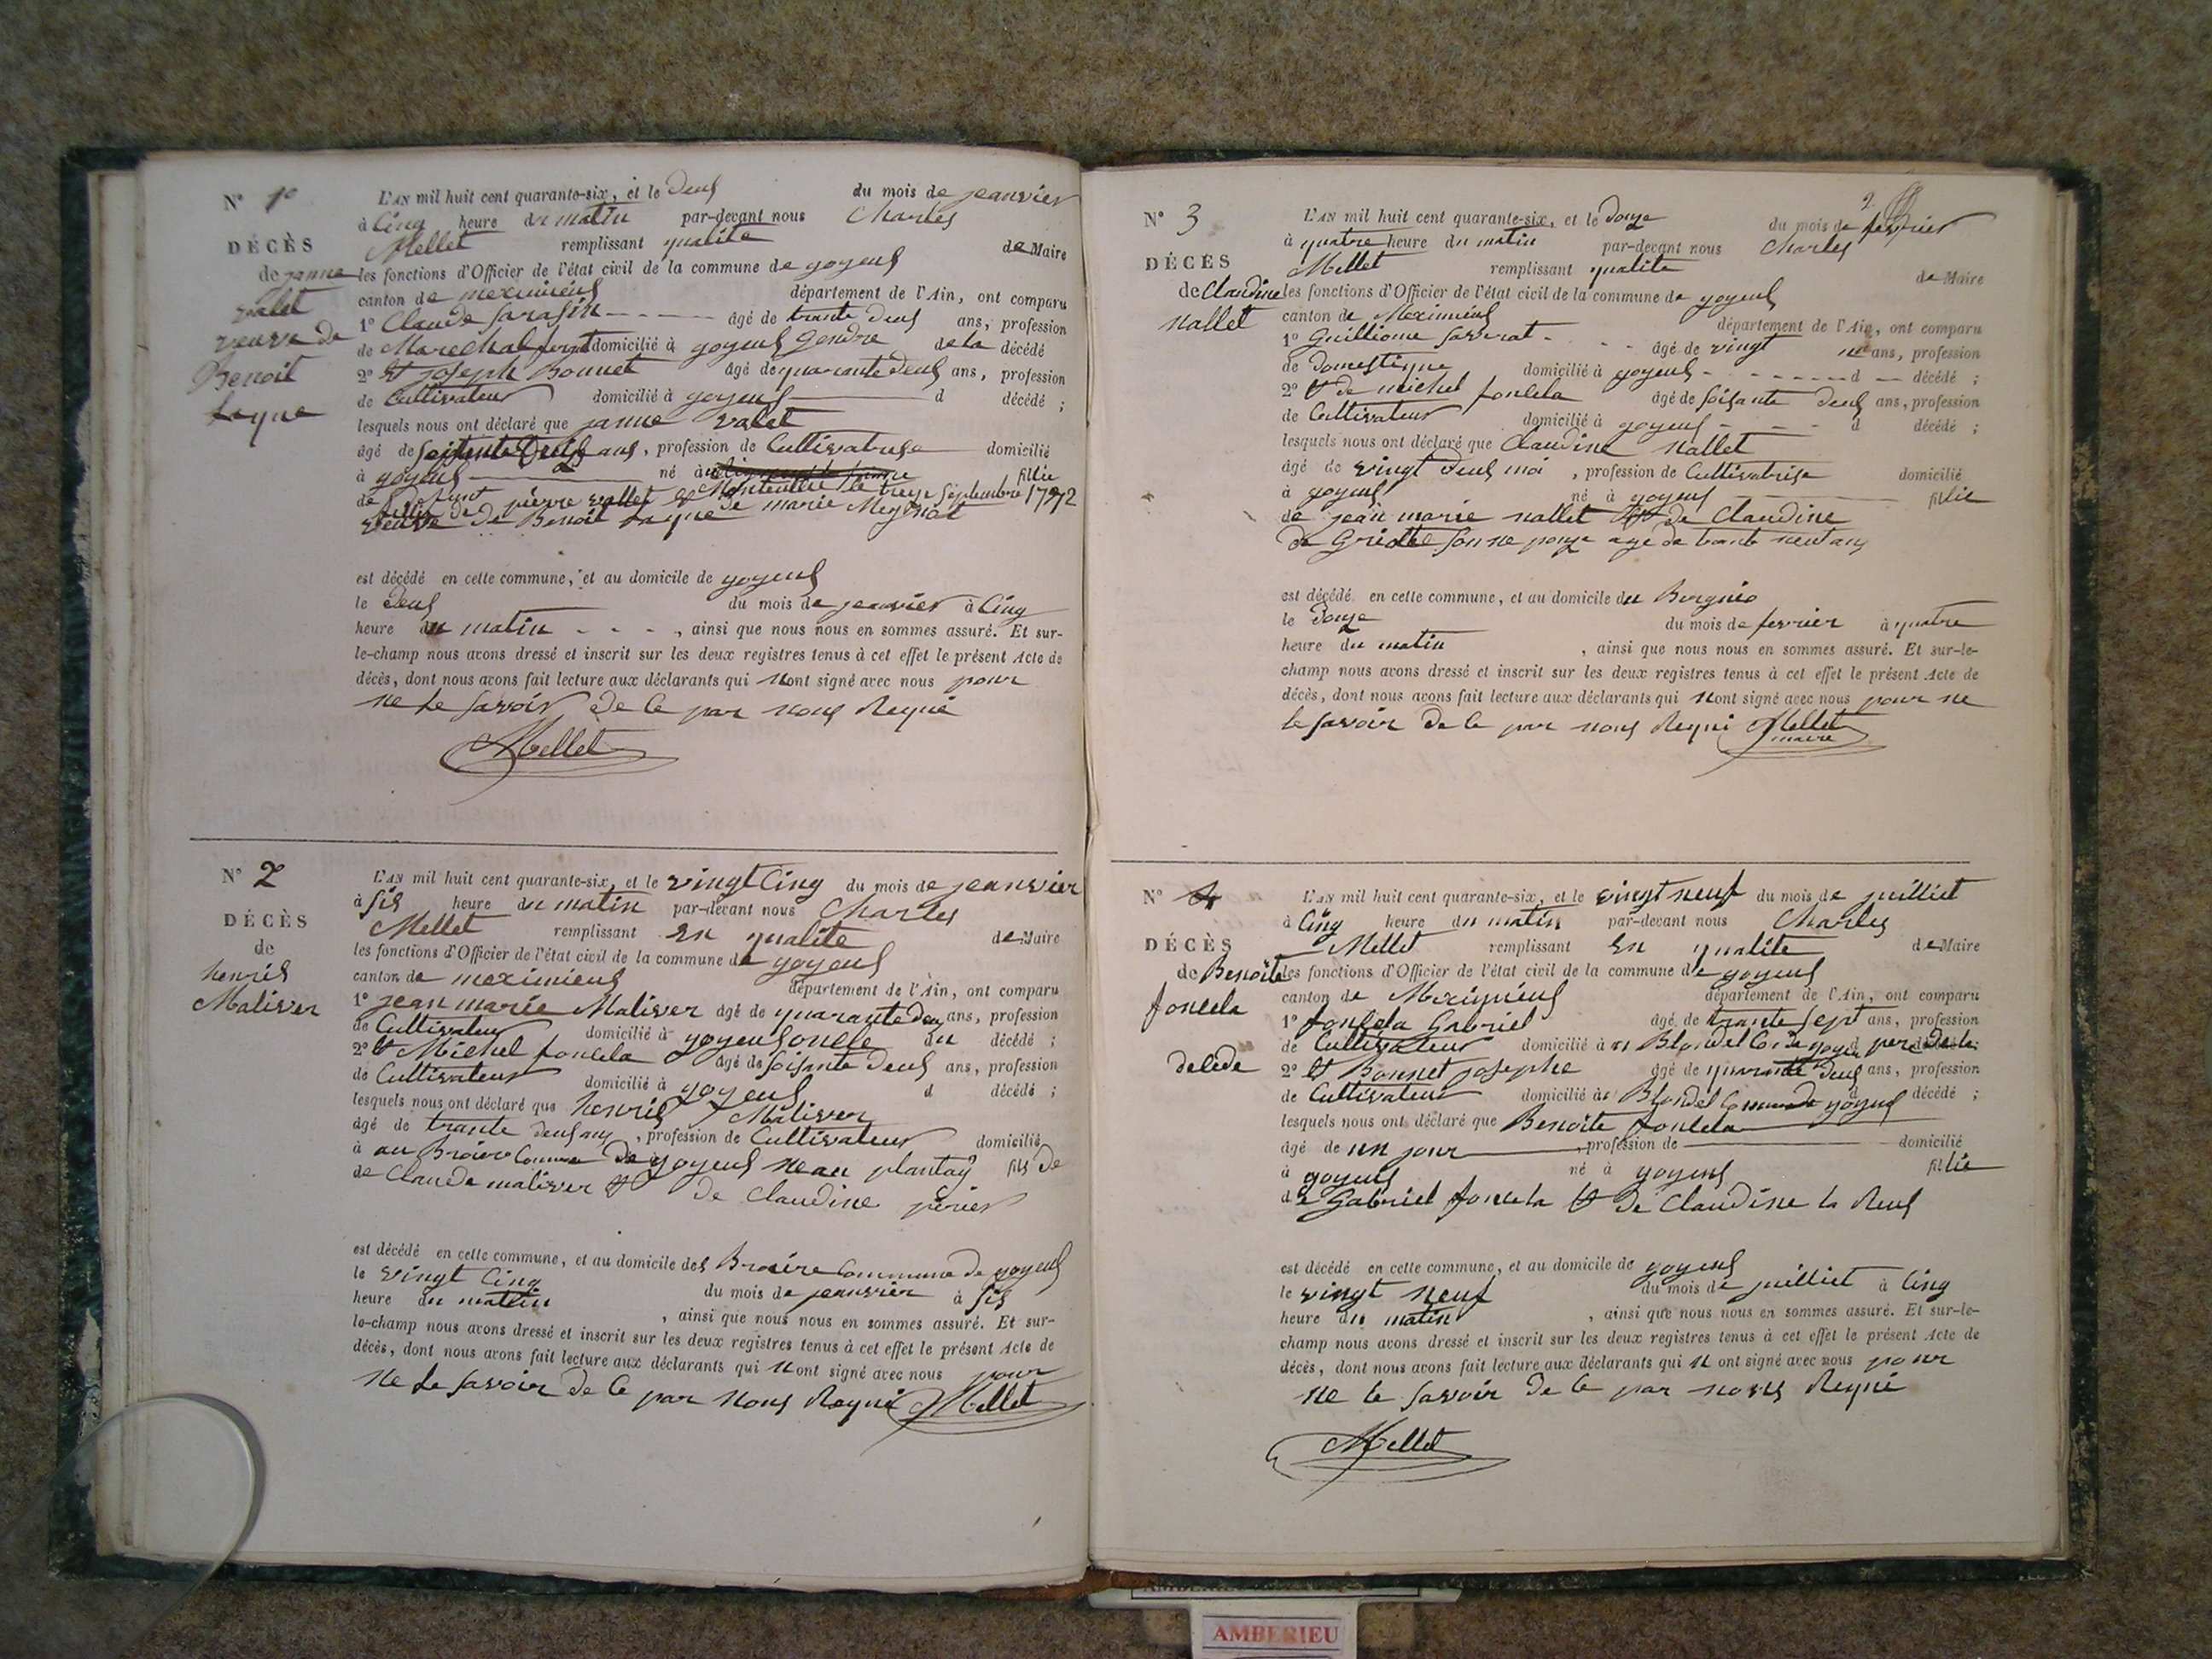 N° 1e
DÉCÈS
de janne
valet
veuve de
Benoit
Layne
L'AN mil huit cent quarante-six, et le deus du mois de jeanvier
à Cinq heure du matin par-devant nous Charles
Mellet remplissant qualite de Maire
les fonctions d'Officier de l'état civil de la commune de goyeus
canton de meximieus département de l'Ain, ont comparu
1° Claude Sarasin âgé de trante deus ans, profession
de Marechal domicilié à goyeus Gendre de la décédé
2° et joseph Bonnet âgé de quarante deus ans, profession
de Cultivateur domicilié à goyeus d décédé ;
lesquels nous ont déclaré que janne valet
âgé de ans, profession de Cultivatrise domicilié
à goyeus né à fillie
de defunt pierre vallet le treze Septembre 1772
veuve de Benoit Layne de marie
est décédé en cette commune, et au domicile de goyeus
le deus du mois de jeanvier à Cinq
heure du matin , ainsi que nous nous en sommes assuré. Et sur-
le-champ nous avons dressé et inscrit sur les deux registres tenus à cet effet le présent Acte de
décès, dont nous avons fait lecture aux déclarants qui nont signé avec nous pour
ne Le savoir de Ce par nous Requi
Mellet
N° 2
DÉCÈS
de
henris
Maliver
L'AN mil huit cent quarante-six, et le vingt Cinq du mois de jeanvier
à Sis heure du matin par-devant nous Charles
Mellet remplissant en qualite de Maire
les fonctions d'Officier de l'état civil de la commune de goyeus
canton de meximieus département de l'Ain, ont comparu
1° jean marie Maliver âgé de quarante deus ans, profession
de Cultivateur domicilié à goyeus oncle du décédé ;
2° et Michel fonlela âgé de soisante deus ans, profession
de Cultivateur domicilié à goyeus d décédé ;
lesquels nous ont déclaré que henris Maliver
âgé de trante deus ans, profession de Cultivateur domicilié
à au Commune de goyeus ne au plantay fils de
de Claude maliver et de Claudine perier
est décédé en cette commune, et au domicile des Commune de goyeus
le vingt Cinq du mois de jeanvier à Sis
heure du matin , ainsi que nous nous en sommes assuré. Et sur-
le-champ nous avons dressé et inscrit sur les deux registres tenus à cet effet le présent Acte de
décès, dont nous avons fait lecture aux déclarants qui nont signé avec nous pour
ne Le savoir de Ce par nous Requi Mellet
2.
N° 3
DÉCÈS
de Claudine
nallet
L'AN mil huit cent quarante-six, et le douze du mois de fevrier
à quatre heure du matin par-devant nous Charles
Mellet remplissant qualite de Maire
les fonctions d'Officier de l'état civil de la commune de goyeus
canton de Meximieus département de l'Ain, ont comparu
1° Guilliome âgé de vingt ans, profession
de domestique domicilié à goyeus d décédé ;
2° et de michel fonlela âgé de soisante deus ans, profession
de Cultivateur domicilié à goyeus d décédé ;
lesquels nous ont déclaré que Claudine nallet
âgé de vingt deus moi , profession de Cultivatrise domicilié
à goyeus né à goyeus fillie
de jean marie nallet et de Claudine
age de trante neuf ans
est décédé en cette commune, et au domicile du
le douze du mois de fevrier à quatre
heure du matin , ainsi que nous nous en sommes assuré. Et sur-le-
champ nous avons dressé et inscrit sur les deux registres tenus à cet effet le présent Acte de
décès, dont nous avons fait lecture aux déclarants qui nont signé avec nous pour ne
le savoir de Ce par nous Requi Mellet
maire
N° 4
DÉCÈS
de Benoite
fonlela
delede
L'AN mil huit cent quarante-six, et le vingt neuf du mois de juilliet
à Cinq heure du matin par-devant nous Charles
Mellet remplissant en qualite de Maire
les fonctions d'Officier de l'état civil de la commune de goyeus
canton de département de l'Ain, ont comparu
1° fonlela Gabriel âgé de trante sept ans, profession
de Cultivateur domicilié à Blondel goyeus pere de la
2° et Bonnet josephe âgé de quarante deus ans, profession
de Cultivateur domicilié à Blondel Commune de goyeus d décédé ;
lesquels nous ont déclaré que Benoite fonlela
âgé de un jour , profession de domicilié
à goyeus né à goyeus fillie
de Gabriel fonlela et de Claudine la
est décédé en cette commune, et au domicile de goyeus
le vingt neuf du mois de juilliet à Cinq
heure du matin , ainsi que nous nous en sommes assuré. Et sur-le-
champ nous avons dressé et inscrit sur les deux registres tenus à cet effet le présent Acte de
décès, dont nous avons fait lecture aux déclarants qui nont signé avec nous pour
ne le savoir de Ce par nous Requi
Mellet
AMBERIEU